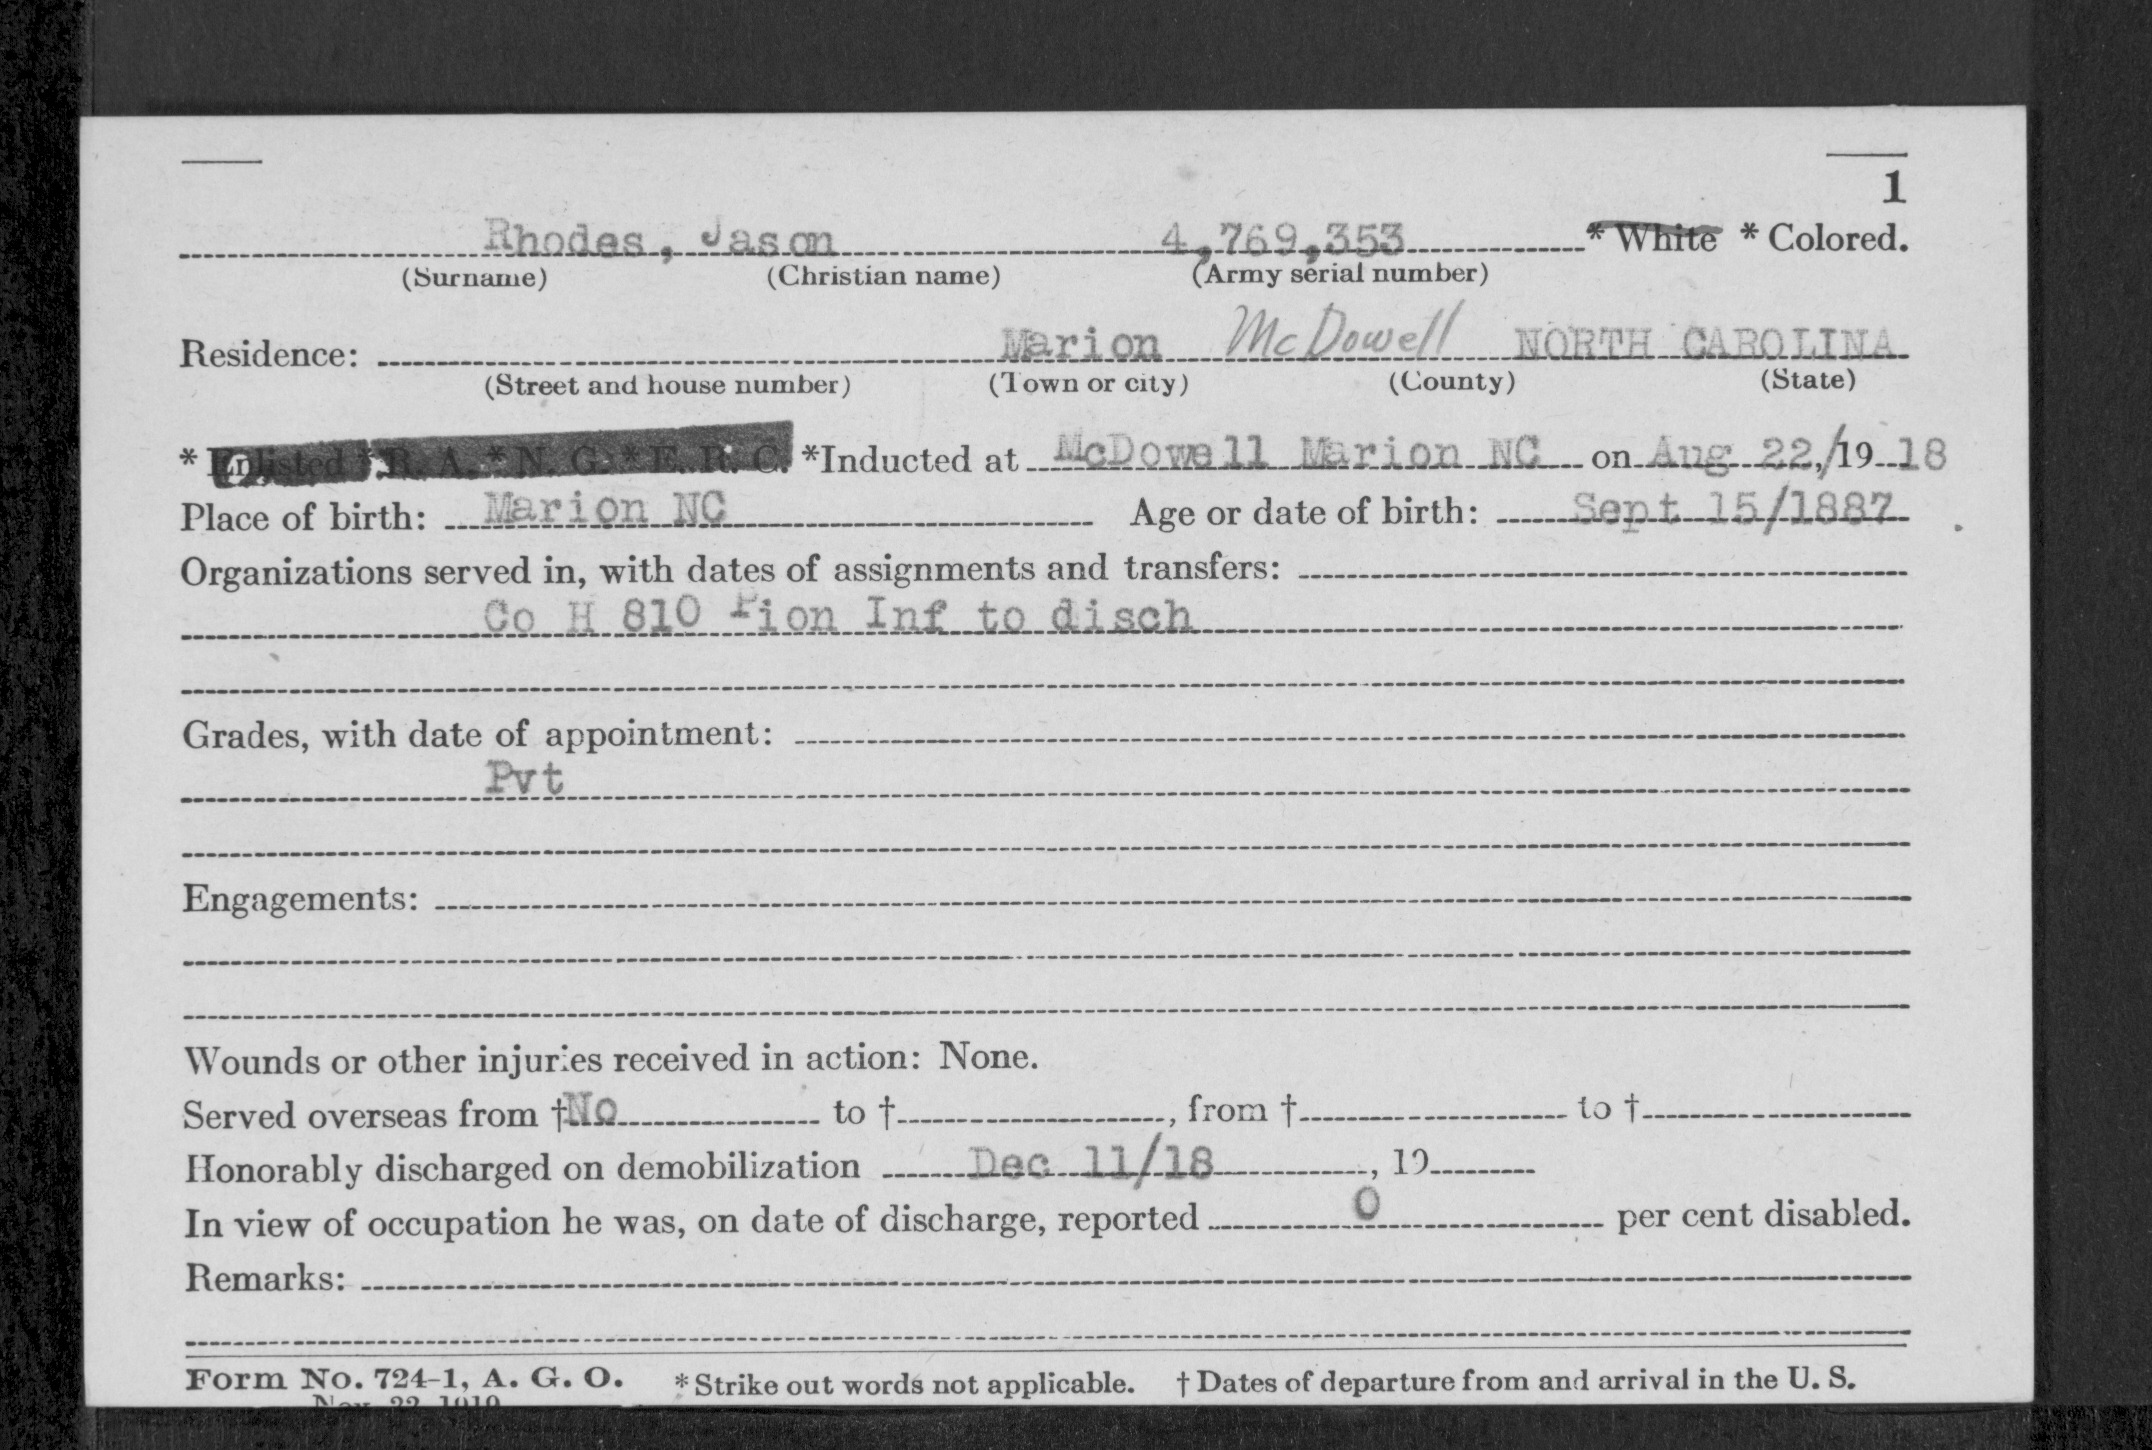 1
Rhodes, Jason 4,769,353 * White * Colored.
(Surname) (Christian name) (Army serial number)
Residence: Marion McDowell NORTH CAROLINA
(Street and house number) (Town or city) (County) (State)
* Enlisted * R. A. * N. G. * E. R. C. *Inducted at McDowell Marion NC on Aug 22,/19 18
Place of birth: Marion NC Age or date of birth: Sept 15/1887
Organizations served in, with dates of assignments and transfers:
Co H 810 Pion Inf to disch
Grades, with date of appointment:
Pvt
Engagements:
Wounds or other injuries received in action: None.
Served overseas from †No to †, from † to †
Honorably discharged on demobilization Dec 11/18, 19
In view of occupation he was, on date of discharge, reported 0 per cent disabled.
Remarks:
Form No. 724-1, A. G. O. *Strike out words not applicable. † Dates of departure from and arrival in the U. S.
Nov. 22 1919